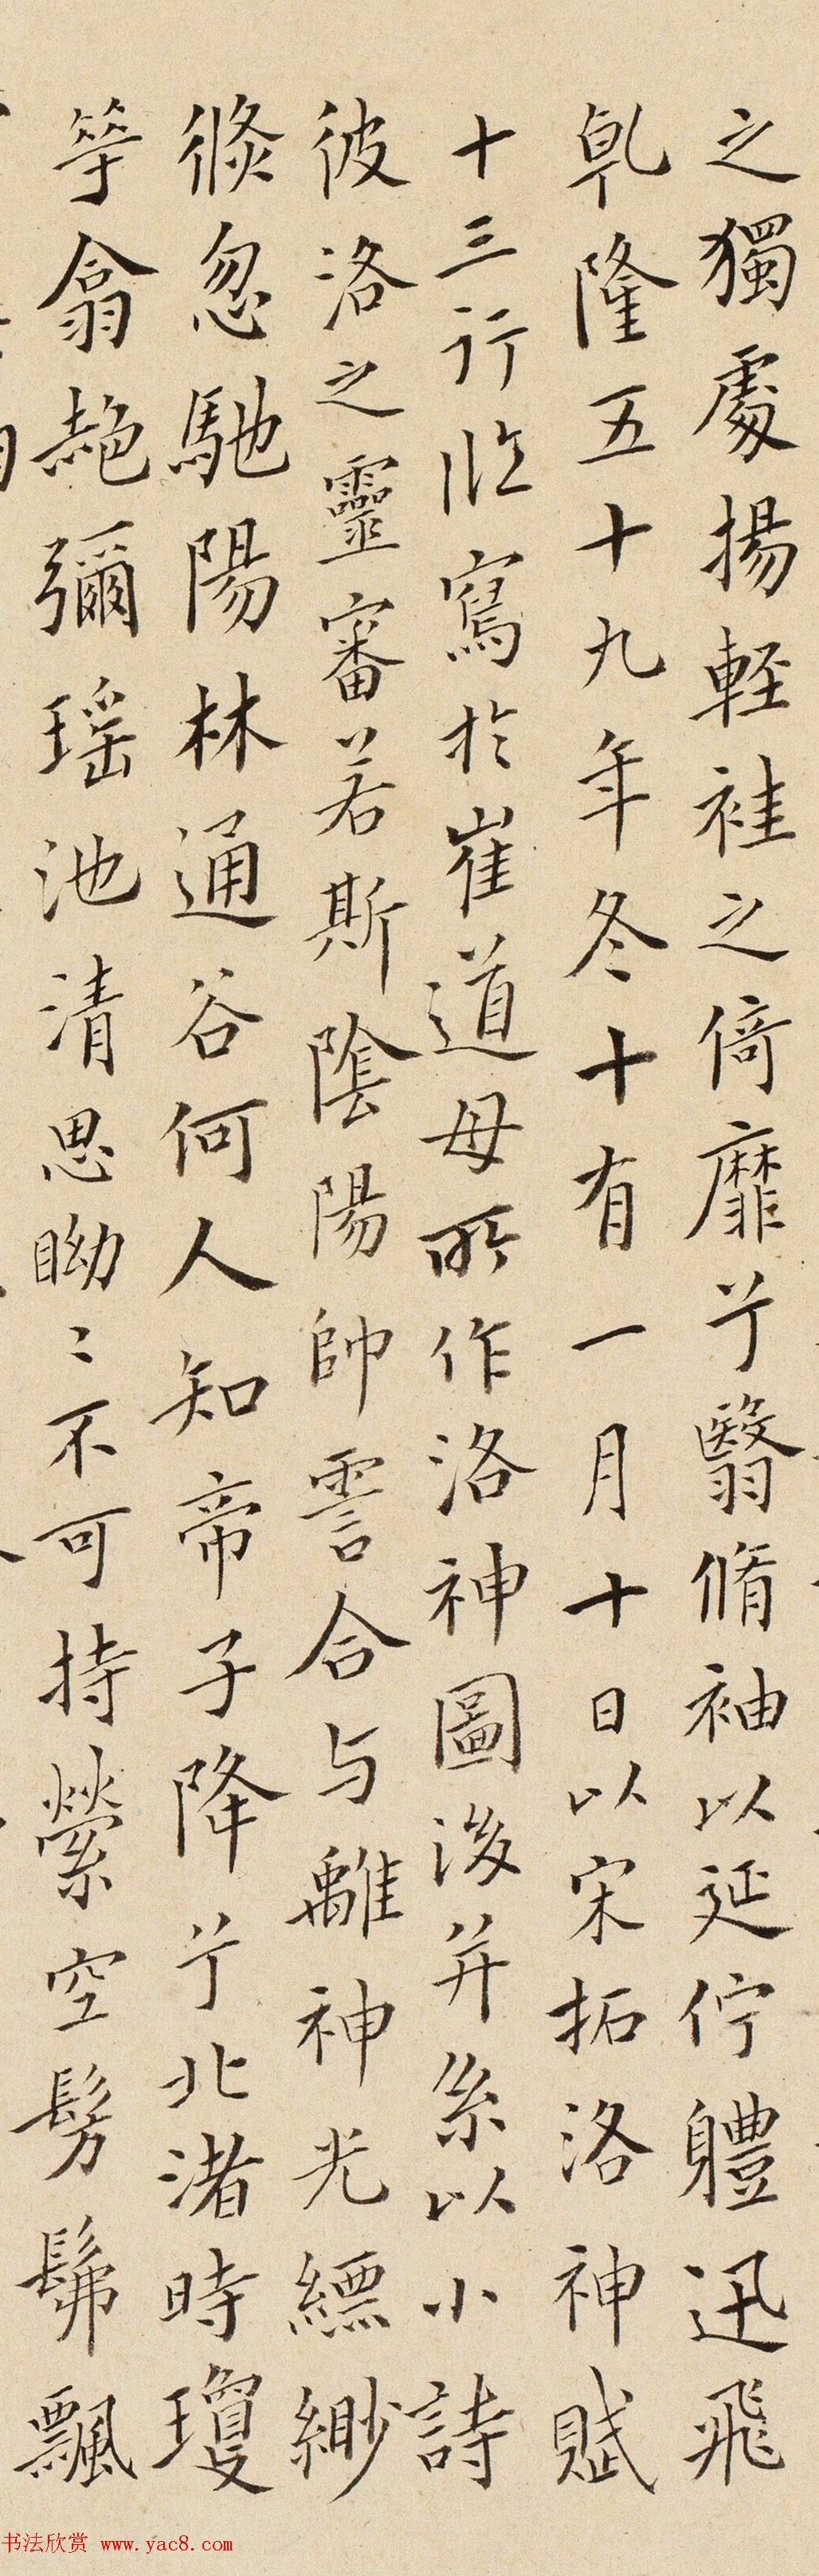 之獨處揚輕袿之倚靡兮翳脩袖以延佇軆迅飛
乹隆五十九年冬十有一月十日以宋拓洛神賦
十三行临寫於崔道母所作洛神圖後并系以小詩
彼洛之靈審若斯陰陽帥䨱合与離神光縹緲
倐忽馳陽林通谷何人知帝子降兮北渚時瓊
華翕赩彌瑶池清思眑〻不可持縈空髣髴飄
书法欣赏 www.yac8.com